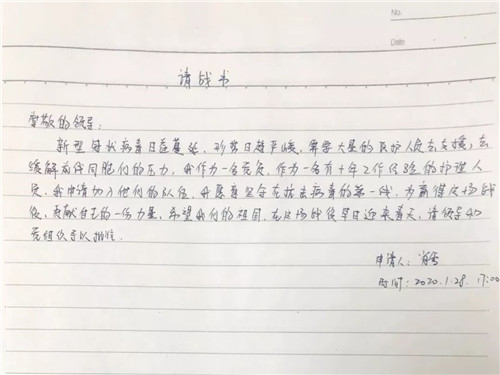 No.
Date
请战书
尊敬的领导:
新型冠状病毒日益蔓延,形势日趋严峻,需要大量的医护人员去支援,去
缓解前线同胞们的压力。我作为一名党员,作为一名有十年工作经验的护理人
员,我申请加入他们的队伍,并愿意坚守在抗击病毒的第一线,为赢得这场战
役,贡献自己的一份力量,希望我们的祖国,在这场战役早日迎来春天,请领导和
党组织予以批准。
申请人:肖
时间:2020.1.28. 17:00